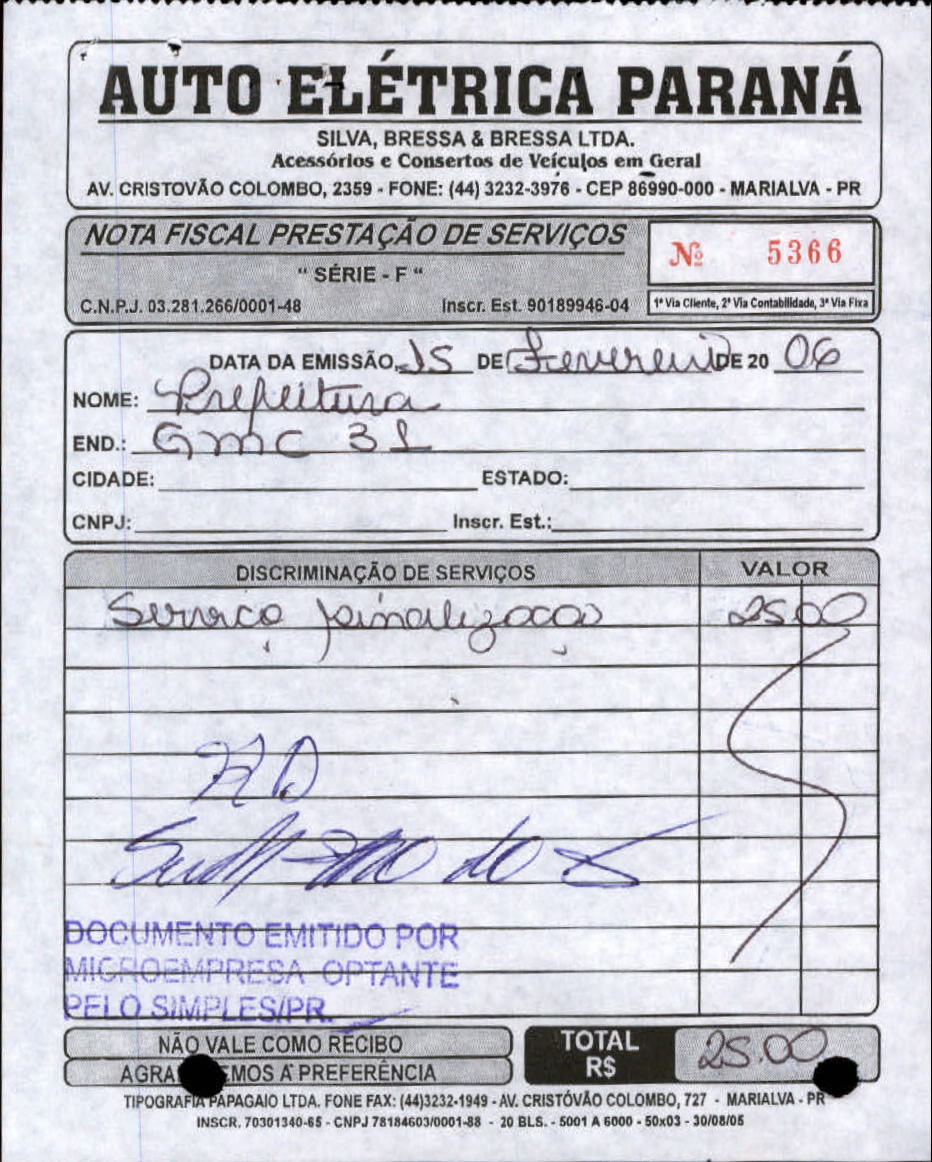 AUTO ELÉTRICA PARANÁ
SILVA, BRESSA & BRESSA LTDA.
Acessórios e Consertos de Veículos em Geral
AV. CRISTOVÃO COLOMBO, 2359 - FONE: (44) 3232-3976 - CEP 86990-000 - MARIALVA - PR
NOTA FISCAL PRESTAÇÃO DE SERVIÇOS
Nº 5366
" SÉRIE - F "
C.N.P.J. 03.281.266/0001-48 Inscr. Est. 90189946-04
1ª Via Cliente, 2ª Via Contabilidade, 3ª Via Fixa
DATA DA EMISSÃO 15 DE Fevereiro DE 20 06
NOME: Prefeitura
END.: GMC 31
CIDADE: ESTADO:
CNPJ: Inscr. Est.:
DISCRIMINAÇÃO DE SERVIÇOS VALOR
Serviço sinalização 25 00
DOCUMENTO EMITIDO POR
MICROEMPRESA OPTANTE
PELO SIMPLES/PR.
NÃO VALE COMO RECIBO
AGRA EMOS A PREFERÊNCIA
TOTAL R$ 25.00
TIPOGRAFIA PAPAGAIO LTDA. FONE FAX: (44)3232-1949 - AV. CRISTÓVÃO COLOMBO, 727 - MARIALVA - PR
INSCR. 70301340-65 - CNPJ 78184603/0001-88 - 20 BLS. - 5001 A 6000 - 50x03 - 30/08/05